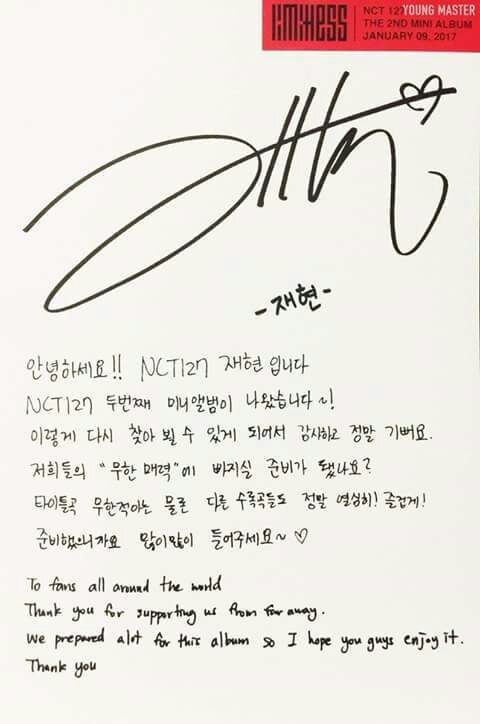 limitless
NCT 127 YOUNG MASTER
THE 2ND MINI ALBUM
JANUARY 09, 2017
-재현-
안녕하세요!! NCT127 재현입니다
NCT127 두번째 미니앨범이 나왔습니다~!
이렇게 다시 찾아 뵐 수 있게 되어서 감사하고 정말 기뻐요.
저희들의 "무한 매력"에 빠지실 준비가 됐나요?
타이틀곡 무한적아는 물론 다른 수록곡들도 정말 열심히! 즐겁게!
준비했으니까요 많이많이 들어주세요~ ♡
To fans all around the world
Thank you for supporting us from far away.
We prepared alot for this album so I hope you guys enjoy it.
Thank you